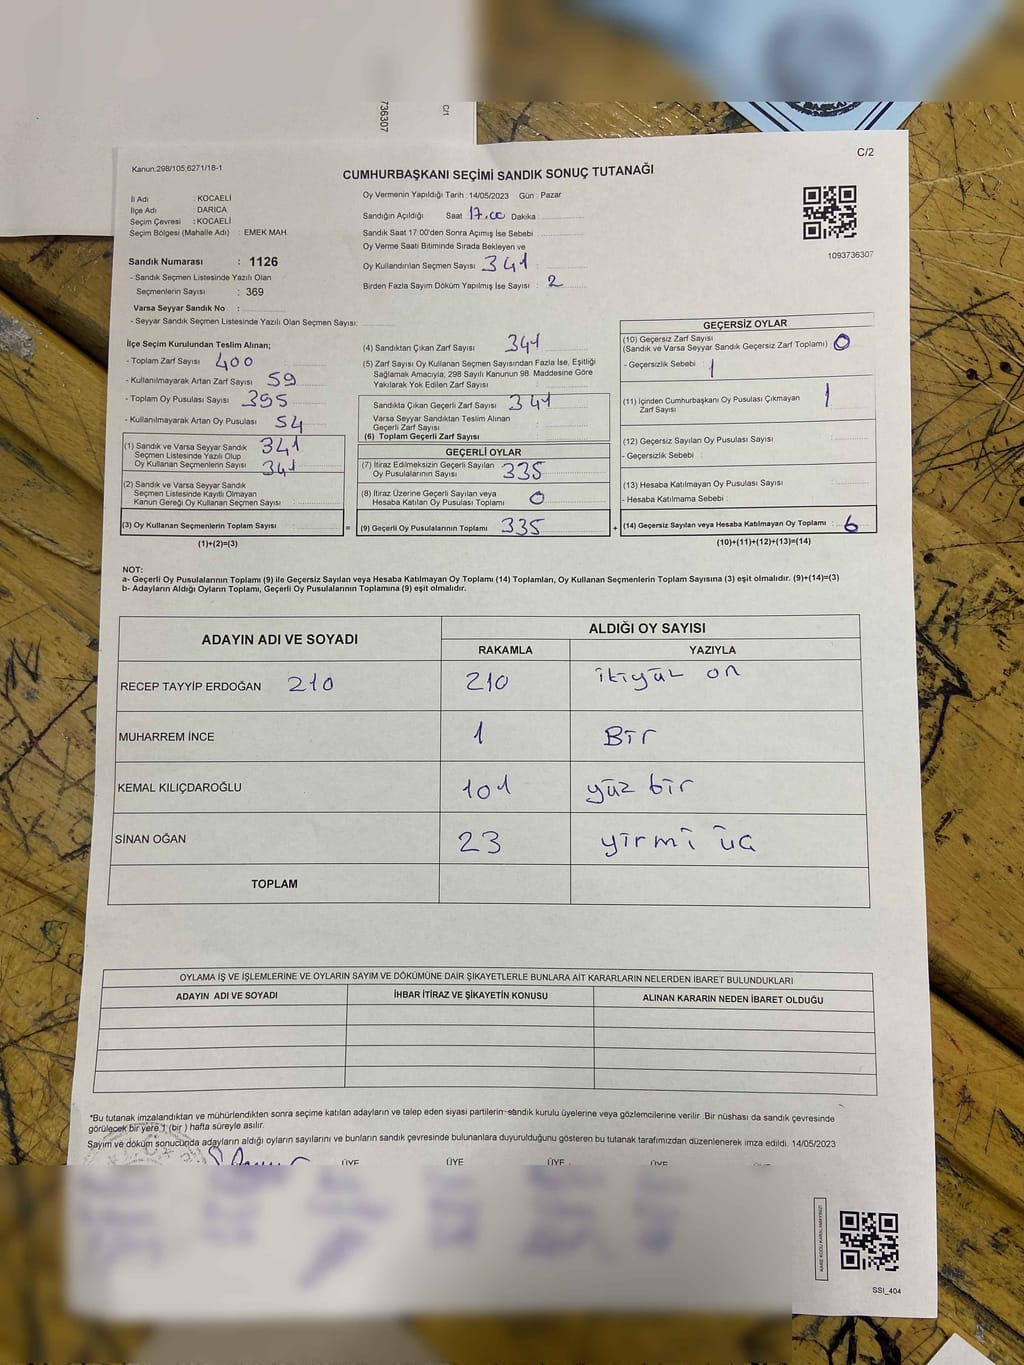 736307
C/1
C/2
Kanun:298/105;6271/18-1
CUMHURBAŞKANI SEÇİMİ SANDIK SONUÇ TUTANAĞI
İl Adı : KOCAELİ
İlçe Adı : DARICA
Seçim Çevresi : KOCAELİ
Seçim Bölgesi (Mahalle Adı) : EMEK MAH.
Oy Vermenin Yapıldığı Tarih :14/05/2023 Gün : Pazar
Sandığın Açıldığı Saat 17.00 Dakika :
Sandık Saat 17:00'den Sonra Açımış İse Sebebi :
Oy Verme Saati Bitiminde Sırada Bekleyen ve
Oy Kullandırılan Seçmen Sayısı 341 :
Birden Fazla Sayım Döküm Yapılmış İse Sayısı : 2
1093736307
Sandık Numarası : 1126
- Sandık Seçmen Listesinde Yazılı Olan
Seçmenlerin Sayısı : 369
Varsa Seyyar Sandık No :
- Seyyar Sandık Seçmen Listesinde Yazılı Olan Seçmen Sayısı:
İlçe Seçim Kurulundan Teslim Alınan;
- Toplam Zarf Sayısı 400
- Kullanılmayarak Artan Zarf Sayısı 59
- Toplam Oy Pusulası Sayısı 395
- Kullanılmayarak Artan Oy Pusulası 54
(1) Sandık ve Varsa Seyyar Sandık 341
Seçmen Listesinde Yazılı Olup
Oy Kullanan Seçmenlerin Sayısı 341
(2) Sandık ve Varsa Seyyar Sandık
Seçmen Listesinde Kayıtlı Olmayan
Kanun Gereği Oy Kullanan Seçmen Sayısı :
(3) Oy Kullanan Seçmenlerin Toplam Sayısı =
(1)+(2)=(3)
(4) Sandıktan Çıkan Zarf Sayısı 341
(5) Zarf Sayısı Oy Kullanan Seçmen Sayısından Fazla İse, Eşitliği
Sağlamak Amacıyla; 298 Sayılı Kanunun 98. Maddesine Göre
Yakılarak Yok Edilen Zarf Sayısı
Sandıkta Çıkan Geçerli Zarf Sayısı 341
Varsa Seyyar Sandıktan Teslim Alınan
Geçerli Zarf Sayısı
(6) Toplam Geçerli Zarf Sayısı
GEÇERLİ OYLAR
(7) İtiraz Edilmeksizin Geçerli Sayılan
Oy Pusulalarının Sayısı 335
(8) İtiraz Üzerine Geçerli Sayılan veya
Hesaba Katılan Oy Pusulası Toplamı 0
(9) Geçerli Oy Pusulalarının Toplamı 335 +
GEÇERSİZ OYLAR
(10) Geçersiz Zarf Sayısı
(Sandık ve Varsa Seyyar Sandık Geçersiz Zarf Toplamı) 0
- Geçersizlik Sebebi : 1
(11) İçinden Cumhurbaşkanı Oy Pusulası Çıkmayan
Zarf Sayısı 1
(12) Geçersiz Sayılan Oy Pusulası Sayısı
- Geçersizlik Sebebi :
(13) Hesaba Katılmayan Oy Pusulası Sayısı
- Hesaba Katılmama Sebebi :
(14) Geçersiz Sayılan veya Hesaba Katılmayan Oy Toplamı : 6
(10)+(11)+(12)+(13)=(14)
NOT:
a- Geçerli Oy Pusulalarının Toplamı (9) ile Geçersiz Sayılan veya Hesaba Katılmayan Oy Toplamı (14) Toplamları, Oy Kullanan Seçmenlerin Toplam Sayısına (3) eşit olmalıdır. (9)+(14)=(3)
b- Adayların Aldığı Oyların Toplamı, Geçerli Oy Pusulalarının Toplamına (9) eşit olmalıdır.
ADAYIN ADI VE SOYADI
ALDIĞI OY SAYISI
RAKAMLA YAZIYLA
RECEP TAYYİP ERDOĞAN 210 210 ikiyüz on
MUHARREM İNCE 1 Bir
KEMAL KILIÇDAROĞLU 101 yüz bir
SİNAN OĞAN 23 yirmi üç
TOPLAM
OYLAMA İŞ VE İŞLEMLERİNE VE OYLARIN SAYIM VE DÖKÜMÜNE DAİR ŞİKAYETLERLE BUNLARA AİT KARARLARIN NELERDEN İBARET BULUNDUKLARI
ADAYIN ADI VE SOYADI İHBAR İTİRAZ VE ŞİKAYETİN KONUSU ALINAN KARARIN NEDEN İBARET OLDUĞU
*Bu tutanak imzalandıktan ve mühürlendikten sonra seçime katılan adayların ve talep eden siyasi partilerin sandık kurulu üyelerine veya gözlemcilerine verilir. Bir nüshası da sandık çevresinde
görülecek bir yere 1 (bir) hafta süreyle asılır.
Sayım ve döküm sonucunda adayların aldığı oyların sayılarını ve bunların sandık çevresinde bulunanlara duyurulduğunu gösteren bu tutanak tarafımızdan düzenlenerek imza edildi. 14/05/2023
ÜYE ÜYE ÜYE ÜYE
KARE KODU KARALAMAYINIZ!
SSI_404